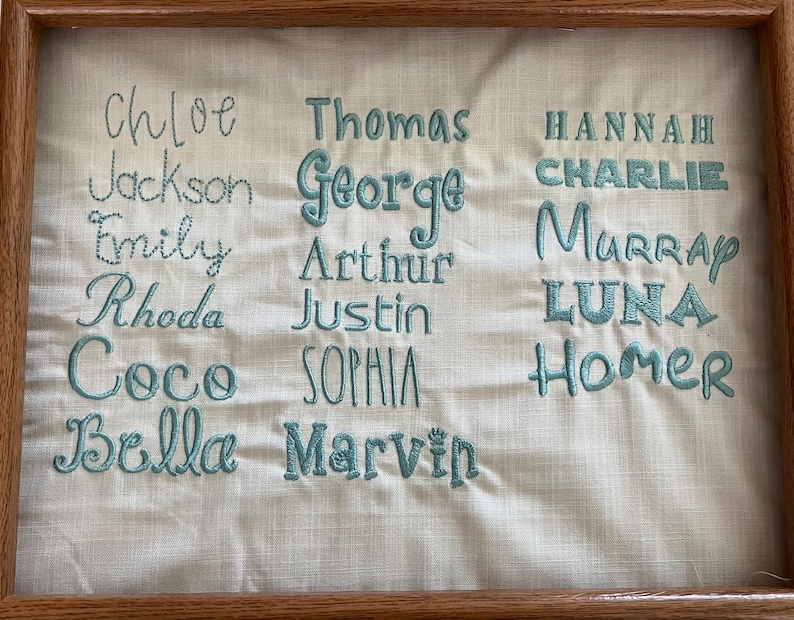 Chloe
Jackson
Emily
Rhoda
Coco
Bella
Thomas
George
Arthur
Justin
SOPHIA
Marvin
HANNAH
CHARLIE
MURRAY
LUNA
HOMER